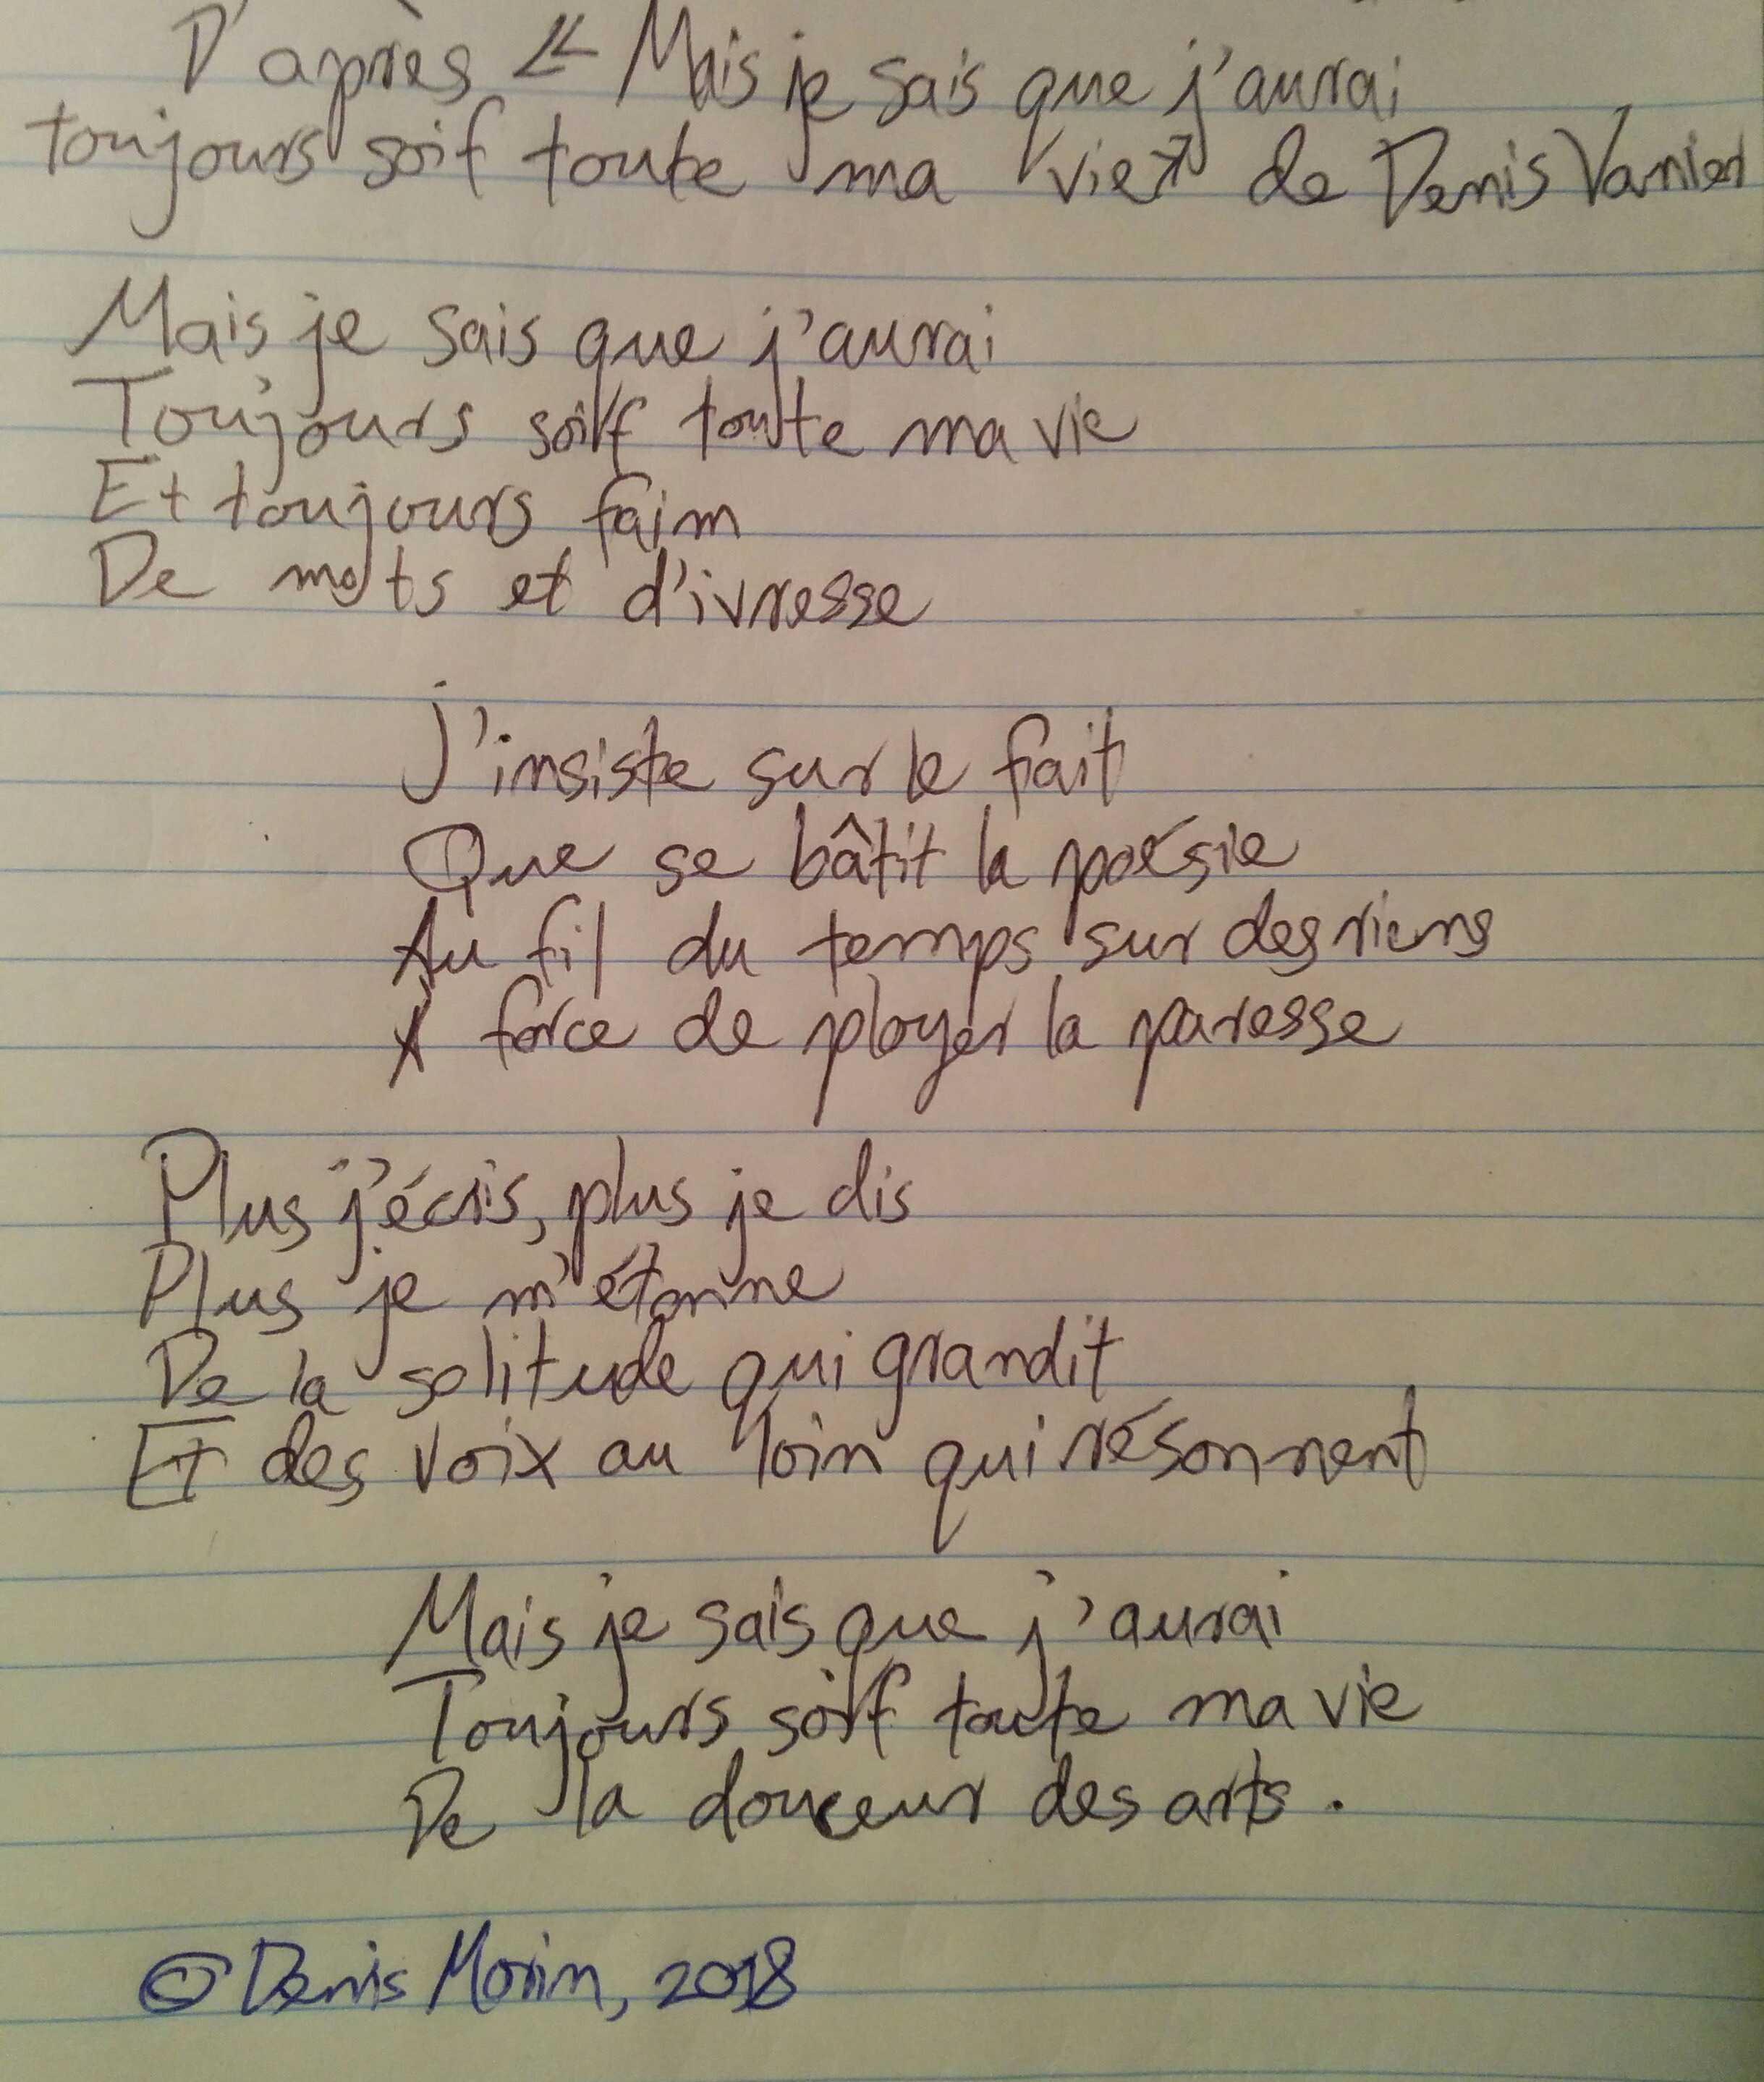 D'après « Mais je sais que j'aurai
toujours soif toute ma vie » de Denis Vanier
Mais je sais que j'aurai
Toujours soif toute ma vie
Et toujours faim
De mots et d'ivresse
J'insiste sur le fait
Que se bâtit la poésie
Au fil du temps sur des riens
À force de ployer la paresse
Plus j'écris, plus je dis
Plus je m'étonne
De la solitude qui grandit
Et des voix au loin qui résonnent
Mais je sais que j'aurai
Toujours soif toute ma vie
De la douceur des arts.
© Denis Morin, 2018